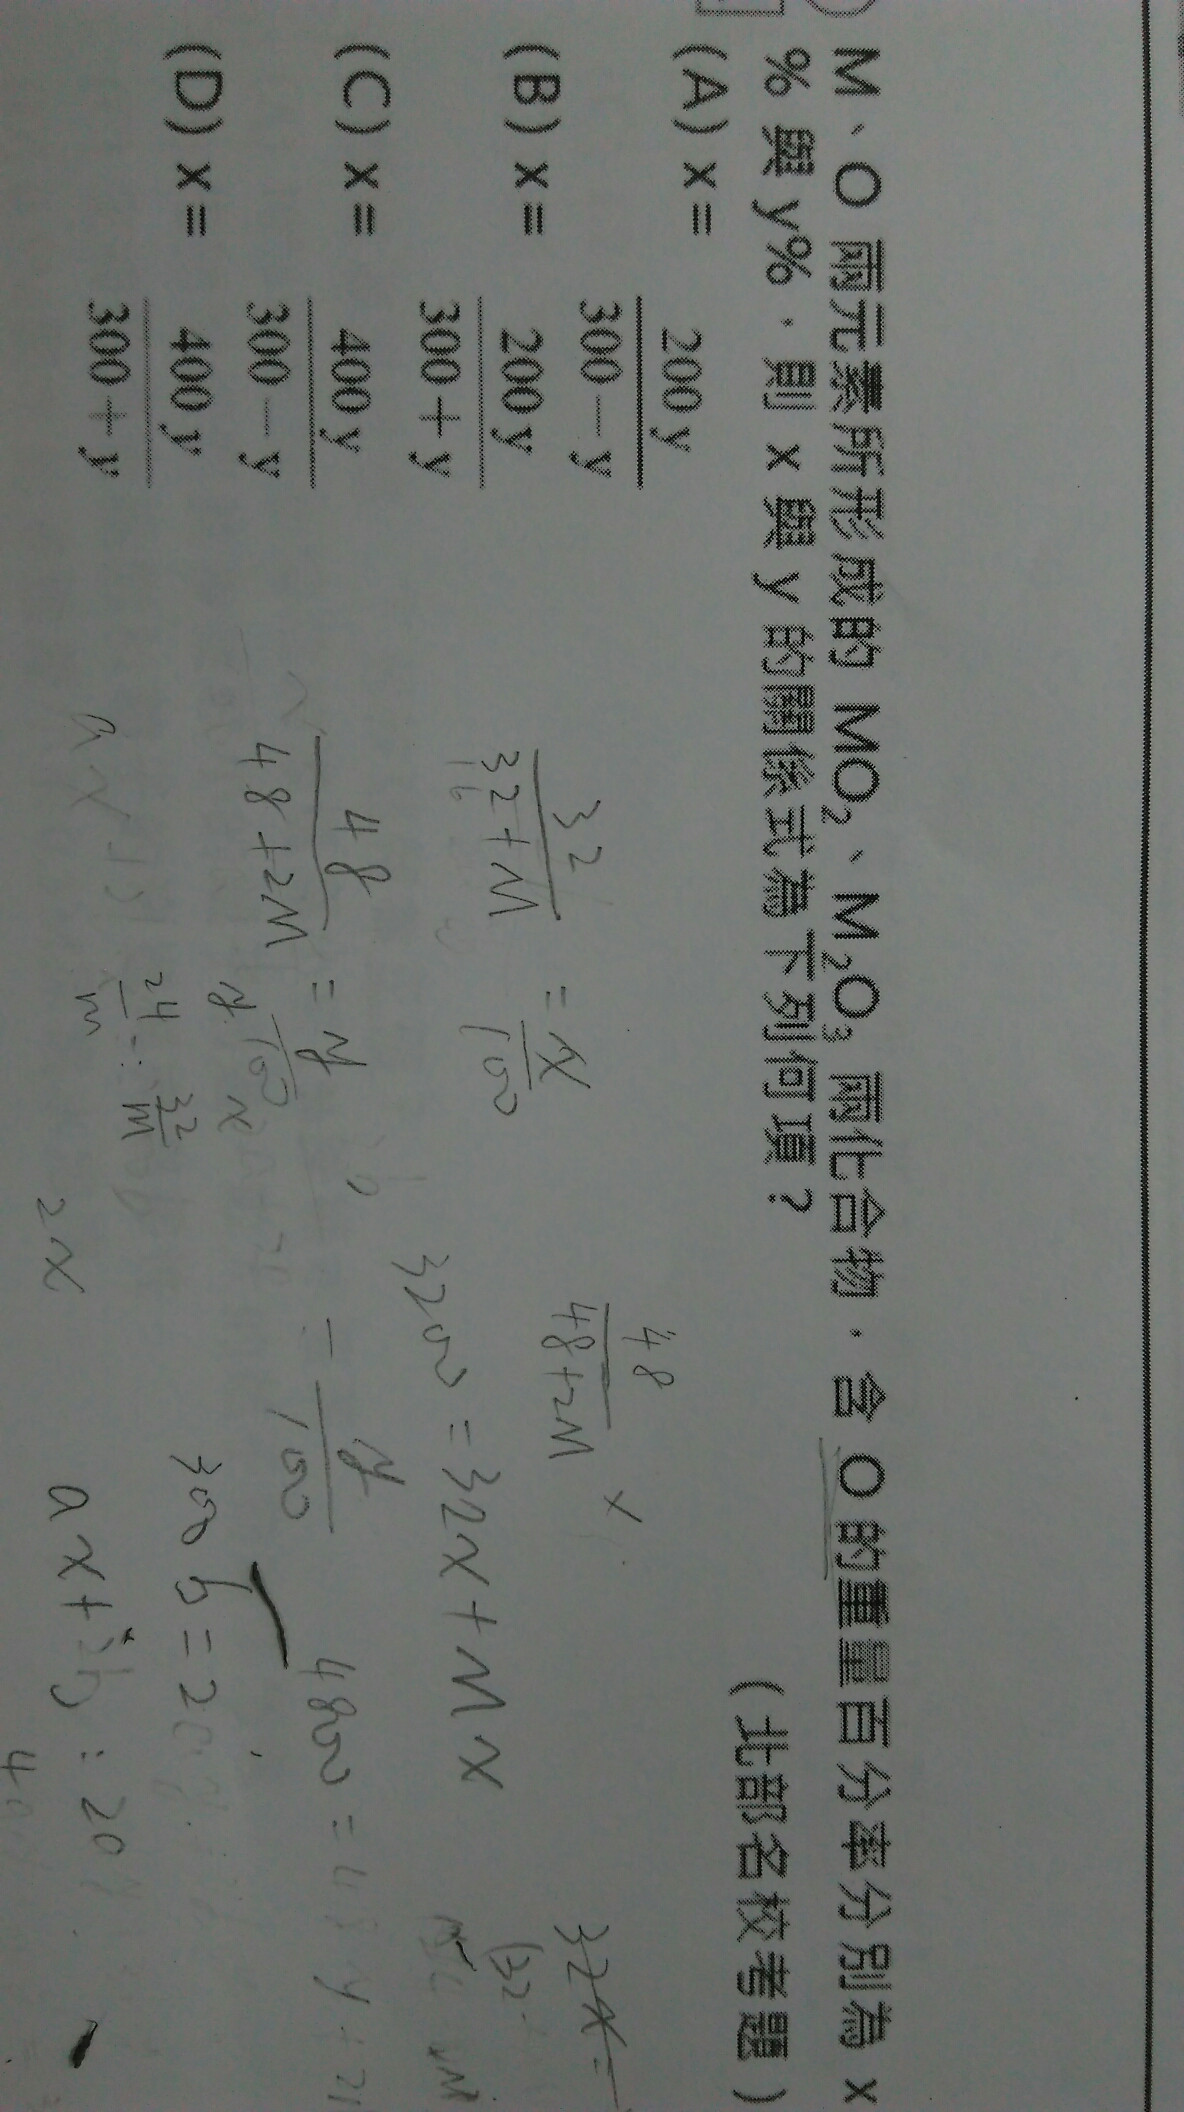 M、O 兩元素所形成的 MO₂、M₂O₃ 兩化合物,含 O 的重量百分率分別為 x
% 與 y%,則 x 與 y 的關係式為下列何項?
(北部名校考題)
(A) x = 200 y / 300 − y
(B) x = 200 y / 300 + y
(C) x = 400 y / 300 − y
(D) x = 400 y / 300 + y
32 / 32+M = x / 100
16
48 / 48+2M
x
3200 = 32x + Mx
48 / 48+2M = y / 100
= y / 100
4800 =
24 / m : 32 / M
300
2x
ax+
: 20
32x =